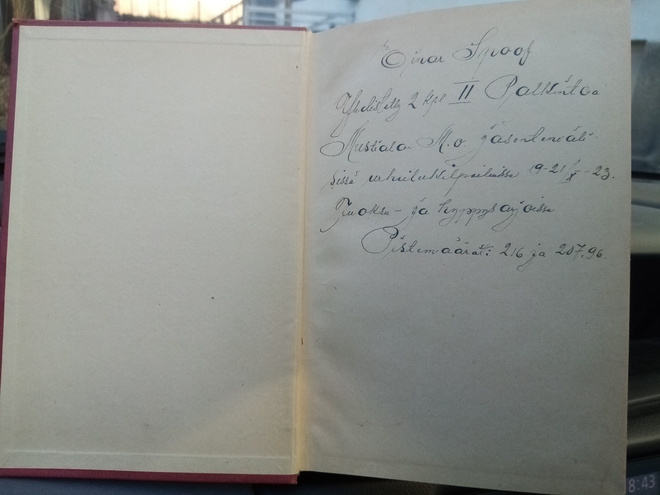 Einar Spoof
Yhdistetty 2 kpl II Palkintoa
Mustiala M.o. jäsentenväli-
sissä urheilukilpailuissa 19-21/X-23.
Juoksu- ja hyppysarjoissa
Pistemäärät: 216 ja 207.96.
8:43